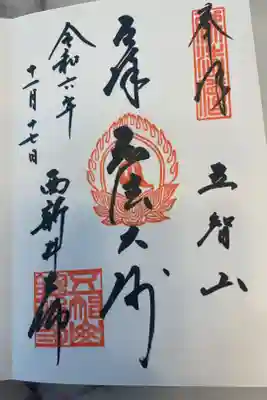 奉拝
五智山
厄除
弘法大師
令和六年
十一月十七日
西新井大師